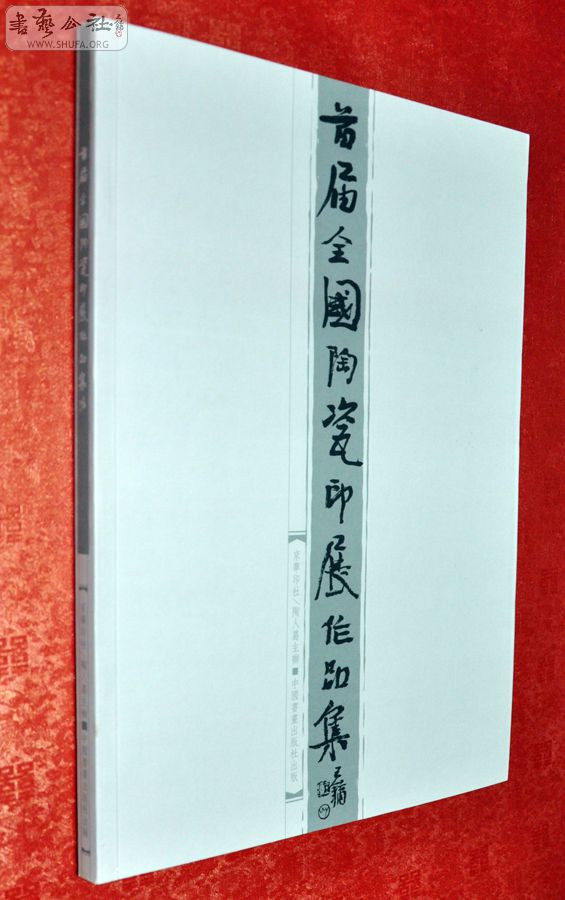 書藝公社
WWW.SHUFA.ORG
首届全國陶瓷印展作品集
王鏞
京華印社/陶人葛主辦■中國書畫出版社出版
首届全國陶瓷印展作品集